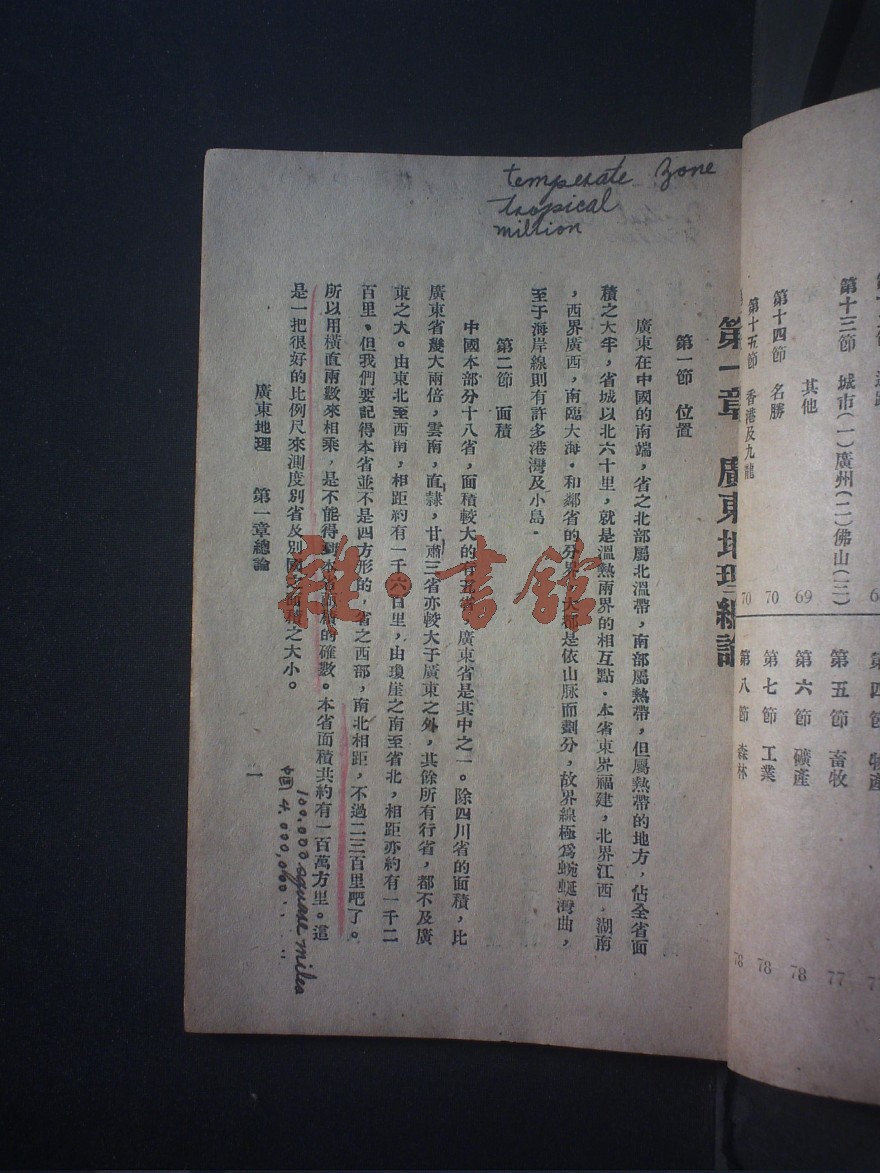 temperate zone
tropical
million
第十三節 城市(一)廣州(二)佛山(三)
其他 69
第十四節 名勝 70
第十五節 香港及九龍 70
第五節 畜牧 77
第六節 礦產 78
第七節 工業 78
第八節 森林 78
第一章 廣東地理總論
第一節 位置
廣東在中國的南端，省之北部屬北溫帶，南部屬熱帶，但屬熱帶的地方，佔全省面
積之大半，省城以北六十里，就是溫熱兩界的相互點。本省東界福建，北界江西，湖南
，西界廣西，南臨大海。和鄰省的分界，大都是依山脈而劃分，故界線極爲蜿蜒灣曲，
至于海岸線則有許多港灣及小島。
第二節 面積
中國本部分十八省，面積較大的有五省，廣東省是其中之一。除四川省的面積，比
廣東省幾大兩倍，雲南，直隸，甘肅三省亦較大于廣東之外，其餘所有行省，都不及廣
東之大。由東北至西南，相距約有一千六百里，由瓊崖之南至省北，相距亦約有一千二
百里。但我們要記得本省並不是四方形的，省之西部，南北相距，不過二三百里吧了。
所以用橫直兩數來相乘，是不能得到本省面積的確數。本省面積共約有一百萬方里。這
是一把很好的比例尺來測度別省及別國之面積之大小。
廣東地理 第一章總論 一
100,000 square miles
中國 4,000,000 .. ..
雜·書館